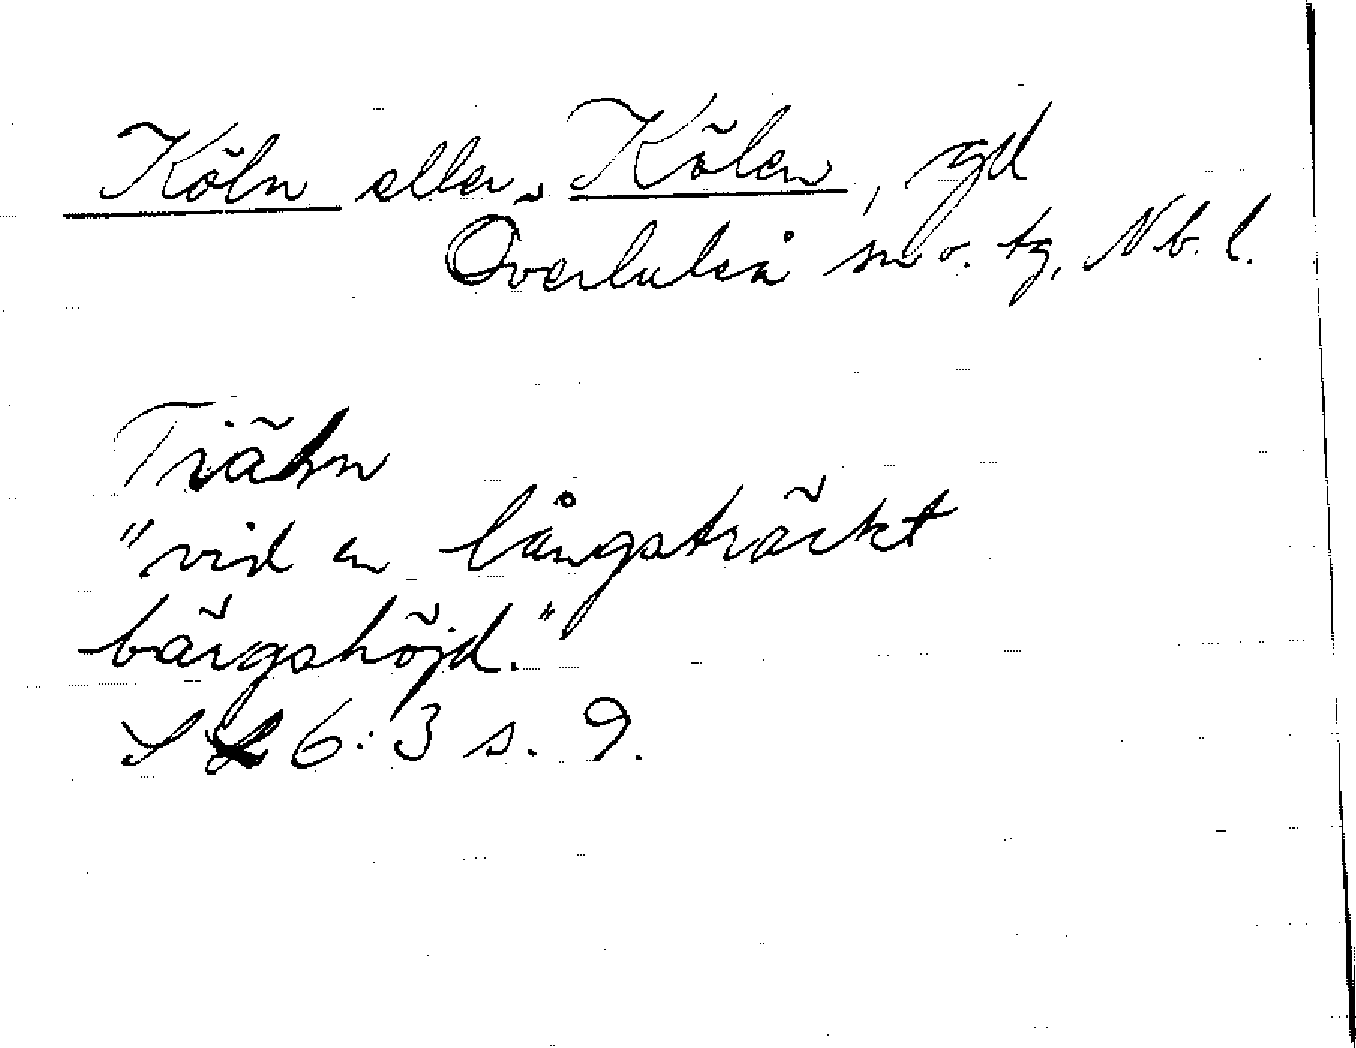 Köln eller Kölen, gd
Överluleå sn o. tg, Nb. l.
"vid en långsträckt
bärgshöjd."
6:3 s. 9.